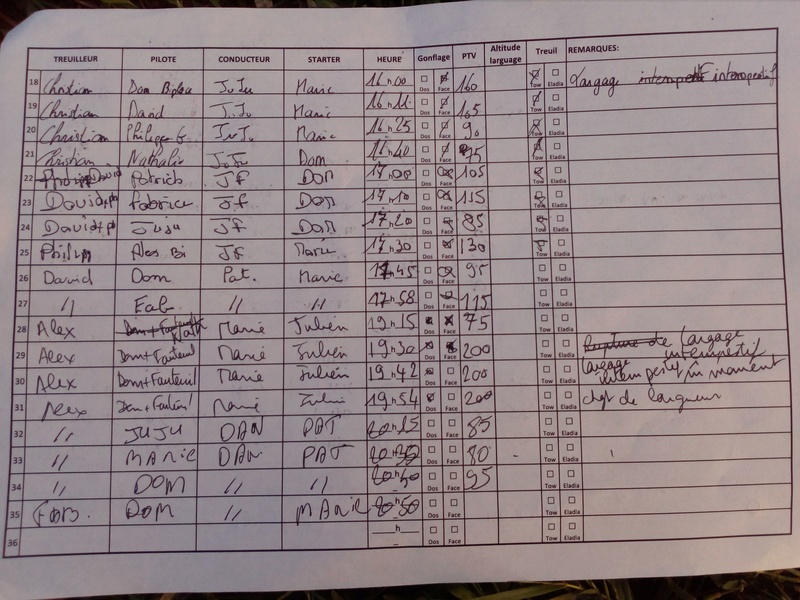 TREUILLEUR PILOTE CONDUCTEUR STARTER HEURE Gonflage PTV Altitude larguage Treuil REMARQUES:
18 Christian Dom Biplace JuJu Marie 16h00 Dos Face 160 Tow Eladia Largage intempestif
19 Christian David JuJu Marie 16h11 Dos Face 165 Tow Eladia
20 Christian Philippe G JuJu Marie 16h25 Dos Face 90 Tow Eladia
21 Christian Nathalie JuJu Dom 16h40 Dos Face 75 Tow Eladia
22 David Patrick Jf Dom 17h00 Dos Face 105 Tow Eladia
23 David+ph Fabrice Jf Dom 17h10 Dos Face 115 Tow Eladia
24 David+ph Juju Jf Dom 17h20 Dos Face 85 Tow Eladia
25 Philipp Alex Bi Jf Marie 17h30 Dos Face 130 Tow Eladia
26 David Dom Pat. Marie 17h45 Dos Face 95 Tow Eladia
27 // Fab // // 17h58 Dos Face 115 Tow Eladia
28 Alex Nath Marie Julien 19h15 Dos Face 75 Tow Eladia
29 Alex Dom+Fauteuil Marie Julien 19h30 Dos Face 200 Tow Eladia Rupture de largage intempestif
30 Alex Dom+Fauteuil Marie Julien 19h42 Dos Face 200 Tow Eladia largage intempestif au moment
31 Alex Dom+Fauteuil Marie Julien 19h54 Dos Face 200 Tow Eladia chgt de largueur
32 // JUJU DAN PAT 20h15 Dos Face 85 Tow Eladia
33 // MARIE DAN PAT 20h30 Dos Face 80 Tow Eladia
34 // DOM // // 20h40 Dos Face 95 Tow Eladia
35 FAB. DOM // MARIE 20h50 Dos Face Tow Eladia
36 h Dos Face Tow Eladia